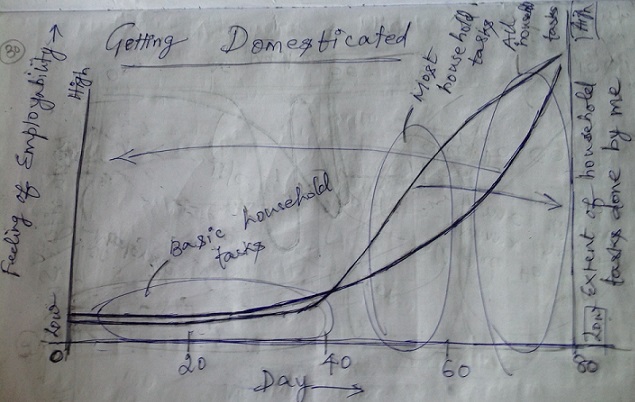 Getting Domesticated
Feeling of Employability →
High
Low
0
Most
household
tasks
All
household
tasks
High
Extent of household
tasks done by me
Low
Basic household
tasks
20
40
60
80
Day →